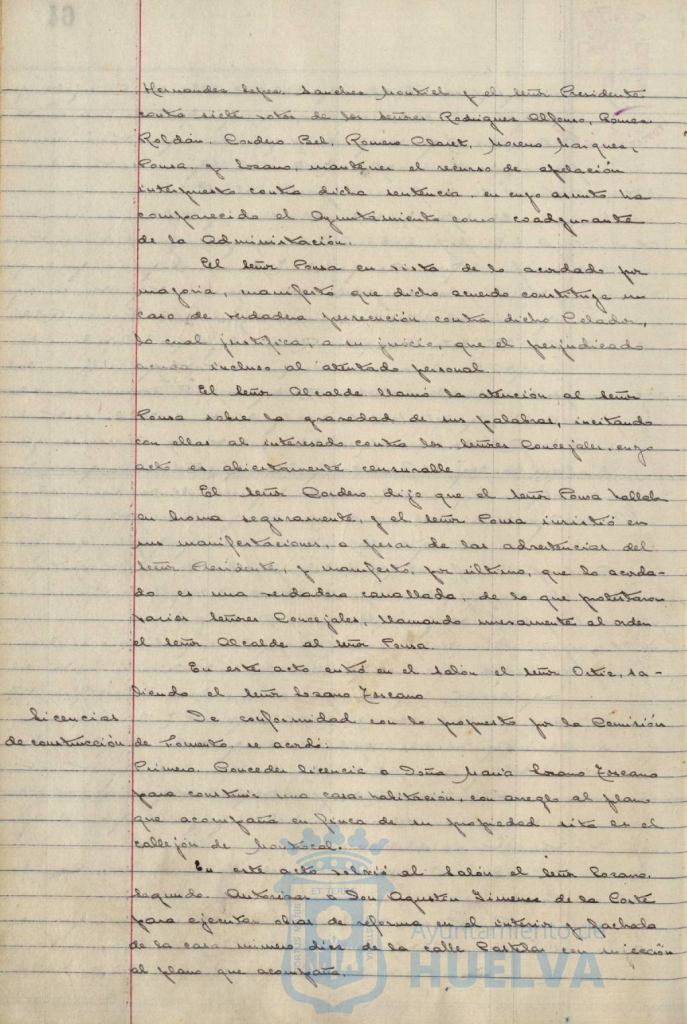 Hernandez Lopez, Sanchez Montiel y el Señor Presidente
contra siete votos de los señores Rodriguez Alfonso, Gomez
Roldán, Cordero Bel, Romero Claret, Moreno Marquez,
Ponsa y Lozano, mantener el recurso de apelación
interpuesto contra dicha sentencia, en cuyo asunto ha
comparecido el Ayuntamiento como coadyuvante
de la Administración.
El Señor Ponsa en vista de lo acordado por
mayoria, manifestó que dicho acuerdo constituye un
caso de verdadera persecución contra dicho Celador,
lo cual justifica, a su juicio, que el perjudicado
acuda incluso al atentado personal.
El Señor Alcalde llamó la atención al Señor
Ponsa sobre la gravedad de sus palabras, incitando
con ellas al interesado contra los Señores Concejales, cuyo
acto es abiertamente censurable
El Señor Cordero dijo que el Señor Ponsa hallab
en broma seguramente, y el Señor Ponsa insistió en
sus manifestaciones, a pesar de las advertencias del
Señor Presidente, y manifestó, por último, que lo acorda-
do es una verdadera canallada, de lo que protestaron
varios Señores Concejales, llamando nuevamente al orden
el Señor Alcalde al Señor Ponsa.
En este acto entró en el salón el Señor Ortiz, sa-
liendo el Señor Lozano Toscano
Licencias
de construcción
De conformidad con lo propuesto por la Comisión
de Fomento, se acordó:
Primero. Conceder licencia a Doña Maria Lozano Toscano
para construir una casa-habitación, con arreglo al plano
que acompaña en finca de su propiedad sita en el
callejón de
En este acto volvió al Salón el Señor Lozano.
Segundo. Autorizar a Don Agustin Jimenez de la Corte
para ejecutar obras de reforma en el interior y fachada
de la casa número diez de la calle Castelar con sujección
al plano que acompaña.
Ayuntamiento de
HUELVA